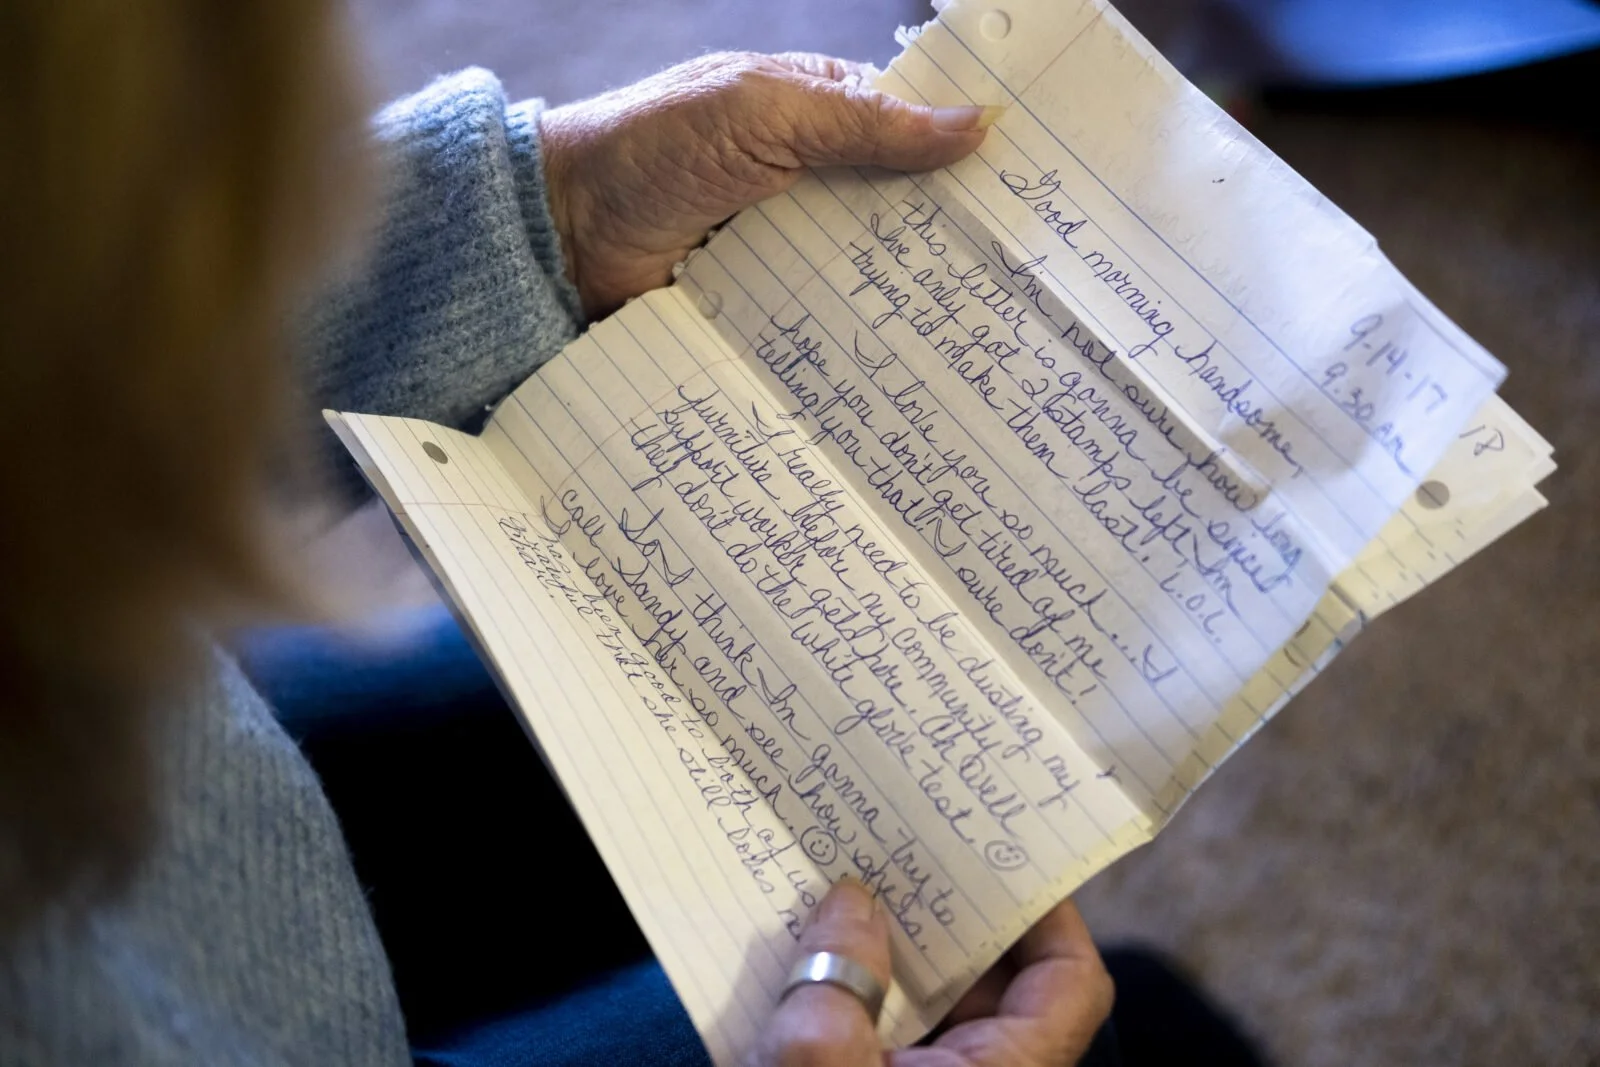 9-14-17
9:30 AM
18
Good morning handsome,
I'm not sure how long
this letter is gonna be since
I've only got 2 stamps left, I'm
trying to make them last. L.O.L.
I love you so much... I
hope you don't get tired of me
telling you that. I sure don't!
I really need to be dusting my
furniture before my community
support worker gets here. Ah Well
they don't do the white glove test. ☺
So I think I'm gonna try to
call Sandy and see how she is.
I love her so much. ☺
has been good to both of us
she still